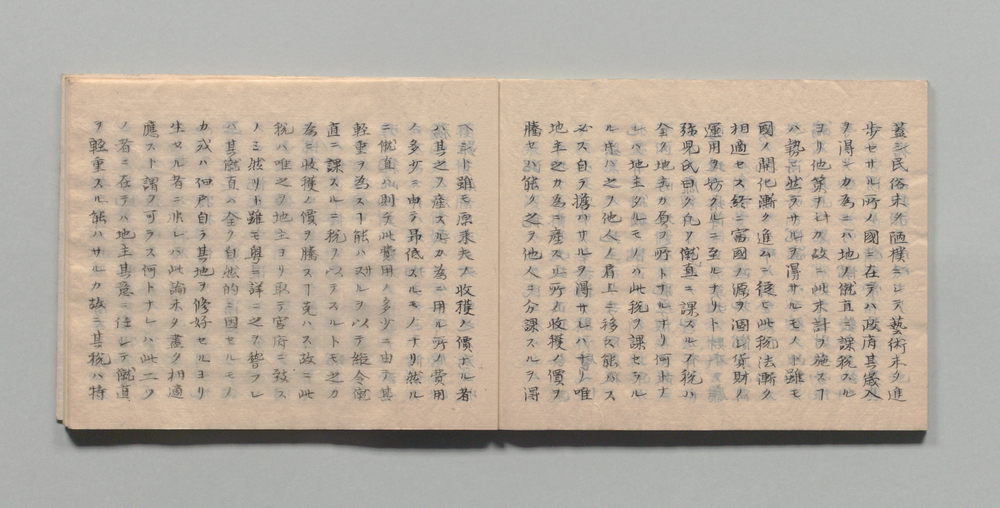 蓋シ民俗未タ陋樸ニシテ藝術未タ進
歩セサル所ノ國ニ在テハ政府其歳入
ヲ得ンカ為ニハ地ノ僦直ニ課税スル
ヨリ他策ナキカ故ニ此末計ヲ施スヿ
ハ勢ニ然ラサルヲ得サルモノト雖モ
國ノ開化漸ク進ムニ従ヒ此税法漸ク
相適セス終ニ富國ノ源ヲ涸シ貨財ノ
運用ヲ妨クルニ至ルナリト
弥児氏曰ク凡ソ僦直ニ課スル所ノ税ハ
全ク地主カ原ヲ所トサルナリ何トナ
レハ地主タルモノハ此税ヲ課セラル
ル片ハ之ヲ他人ノ肩上ニ移ス能ハス
必ス自テ擔ハサルヲ得サレハナリ唯
地主之カ為ニ産スル所ノ收獲ノ價ヲ
騰セハ能ク之ヲ他人ニ分課スルヲ得
ヘシト雖モ原来夫ノ收獲ノ價タル者
ハ其之ヲ産スルカ為ニ用ル所ノ費用
ノ多少ニ由テ昻低スルモノナリ然ル
ニ僦直ハ則チ此費用ノ多少ニ由テ其
軽重ヲ為スヿ能ハスルヲ以テ縦令僦
直ニ課スルニ税ヲ以テスルトモ之カ
為ニ收獲ノ價ヲ騰スヿ克ハス故ニ此
税ハ唯之ヲ地主ヨリ取テ官府ニ致ス
ノミ然リト雖モ粤ニ詳ニ之ヲ皆フレ
ハ其僦直ハ全ク自然的ニ因セルモノ
カ或ハ佃戸自ラ其地ヲ修好セルヨリ
生セル者ニ非レハ此論未タ盡ク相適
應スト謂フ可ラス何トナレハ此二ツ
ノ者ニ在テハ地主其意ニ任シテ僦直
ヲ軽重スル能ハサルカ故ニ其税ハ特